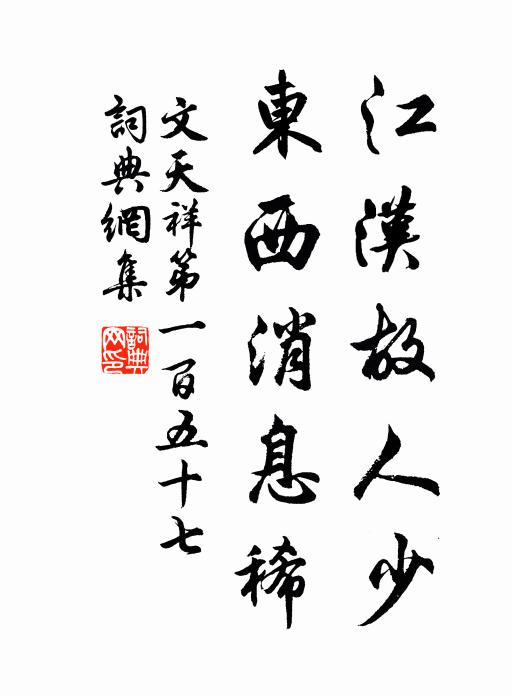 江漢故人少
東西消息稀
文天祥第一百五十七
詞典網集
詞典网印